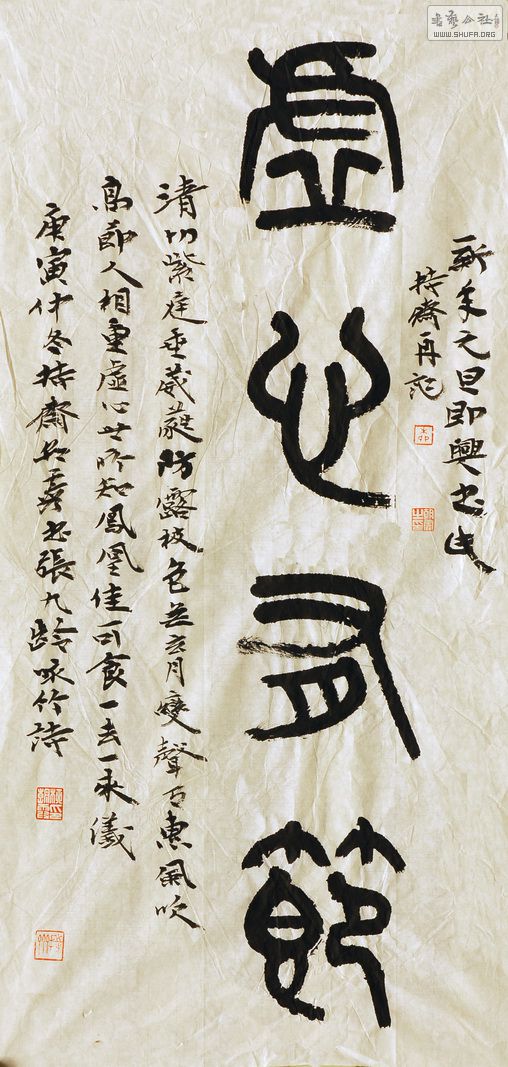 書藝公社
WWW.SHUFA.ORG
新年元旦即興書
齋再記
虛心有節
清切紫庭垂葳蕤防露枝色無玄月變聲有惠風吹
高節人相重虛心世所知鳳凰佳可食一去一來儀
庚寅仲冬齋書張九齡咏竹詩